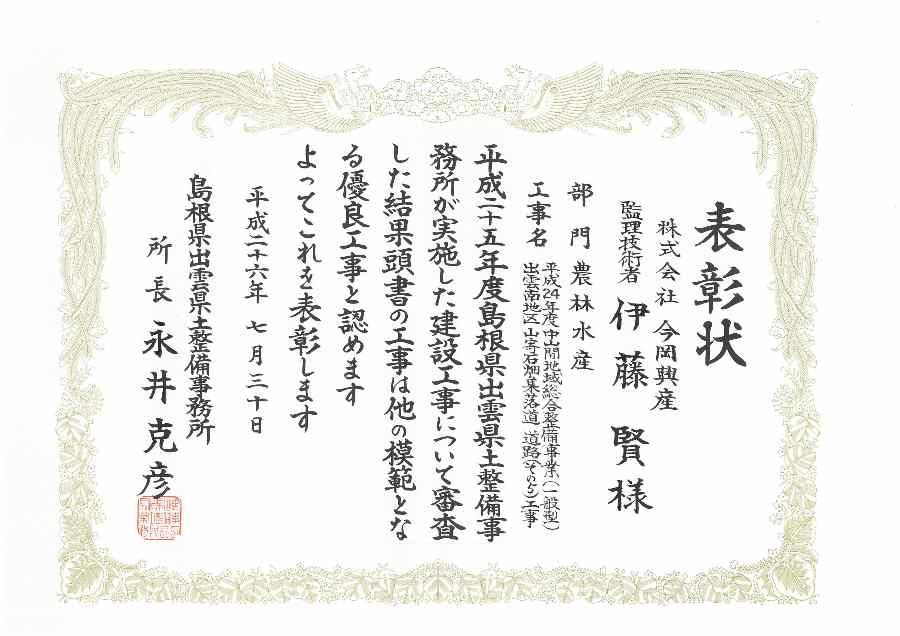 表彰状
株式会社 今岡興産
監理技術者 伊藤賢様
部門 農林水産
工事名 平成24年度 中山間地域総合整備事業(一般型)
出雲南地区 山寄石畑集落道 道路(その2)工事
平成二十五年度島根県出雲県土整備事
務所が実施した建設工事について審査
した結果頭書の工事は他の模範とな
る優良工事と認めます
よってこれを表彰します
平成二十六年 七月三十日
島根県出雲県土整備事務所
所長 永井克彦